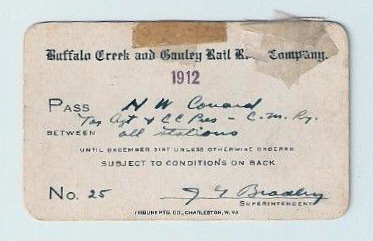 Buffalo Creek and Gauley Rail R Company.
1912
PASS H W Conard
Tax Agt & CC Pres - C. M. Ry.
BETWEEN all stations
UNTIL DECEMBER 31ST UNLESS OTHERWISE ORDERED
SUBJECT TO CONDITIONS ON BACK
No. 25 J G Bradley
SUPERINTENDENT
TRIBUNE PTG. CO., CHARLESTON, W. VA